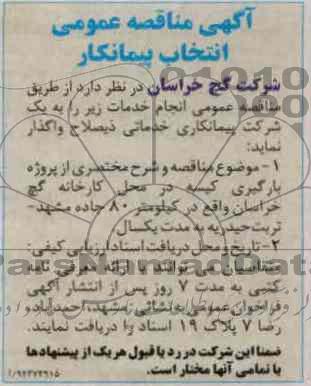 آگهی مناقصه عمومی
انتخاب پیمانکار
شرکت گچ خراسان در نظر دارد از طریق
مناقصه عمومی انجام خدمات زیر را به یک
شرکت پیمانکاری خدماتی ذیصلاح واگذار
نماید:
۱- موضوع مناقصه و شرح مختصری از پروژه
بارگیری کیسه در محل کارخانه گچ
خراسان واقع در کیلومتر ۸۰ جاده مشهد-
تربت حیدریه به مدت یکسال
۲- تاریخ و محل دریافت اسناد ارزیابی کیفی:
متقاضیان می توانند با ارائه معرفی نامه
کتبی به مدت ۷ روز پس از انتشار آگهی
فراخوان عمومی به نشانی مشهد، احمدآباد،
رضا ۷ پلاک ۱۹ اسناد را دریافت نمایند.
ضمنا این شرکت در رد یا قبول هر یک از پیشنهادها
یا تمامی آنها مختار است.